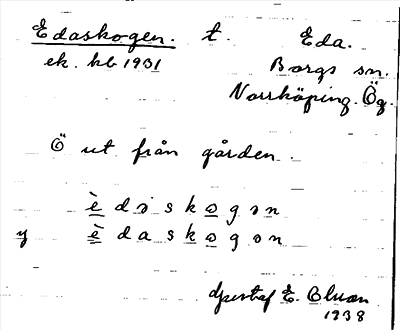 Edaskogen. t. Eda.
ek. kb 1931 Borgs sn.
Norrköping. Ög.
Ö ut från gården.
è d ə s k ɷ g ə n
y è d a s k ɷ g ə n
Gustaf E. Bluan
1938